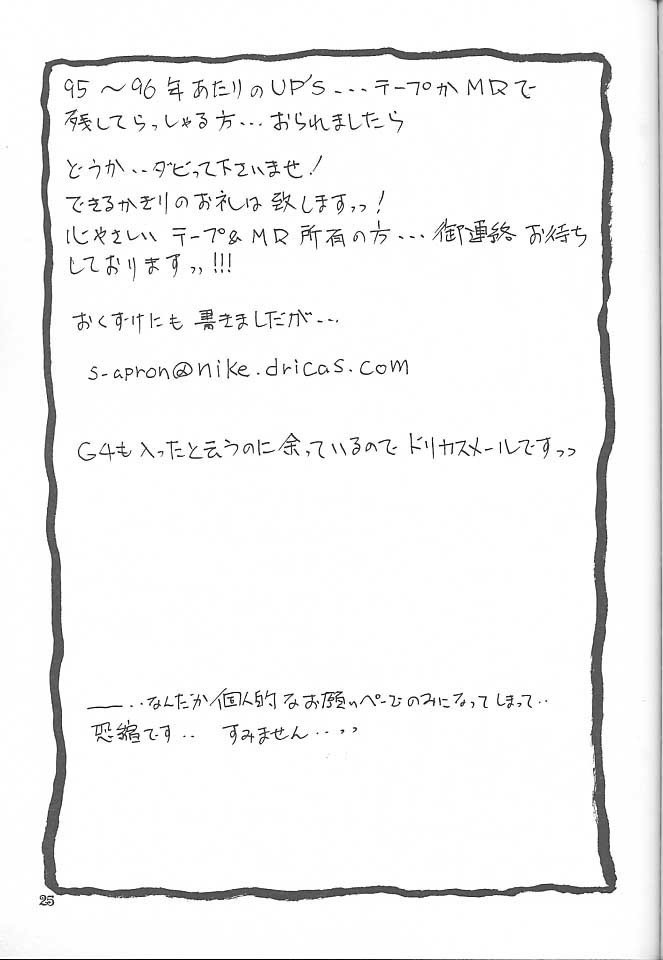 95〜96年あたりのUP'S...テープかMDで
残してらっしゃる方...おられましたら
どうか..ダビって下さいませ!
できるかぎりのお礼は致しますっっ!
心やさしい テープ&MD 所有の方...御連絡 お待ち
しておりますっ,,!!!
おくずけにも 書きましたが...
s-apron@nike.dricas.com
G4も入ったと云うのに余っているので ドリカスメールですっっ
――..なんだか個人的なお願いページのみになってしまって..
恐縮です.. すみません..,,
25